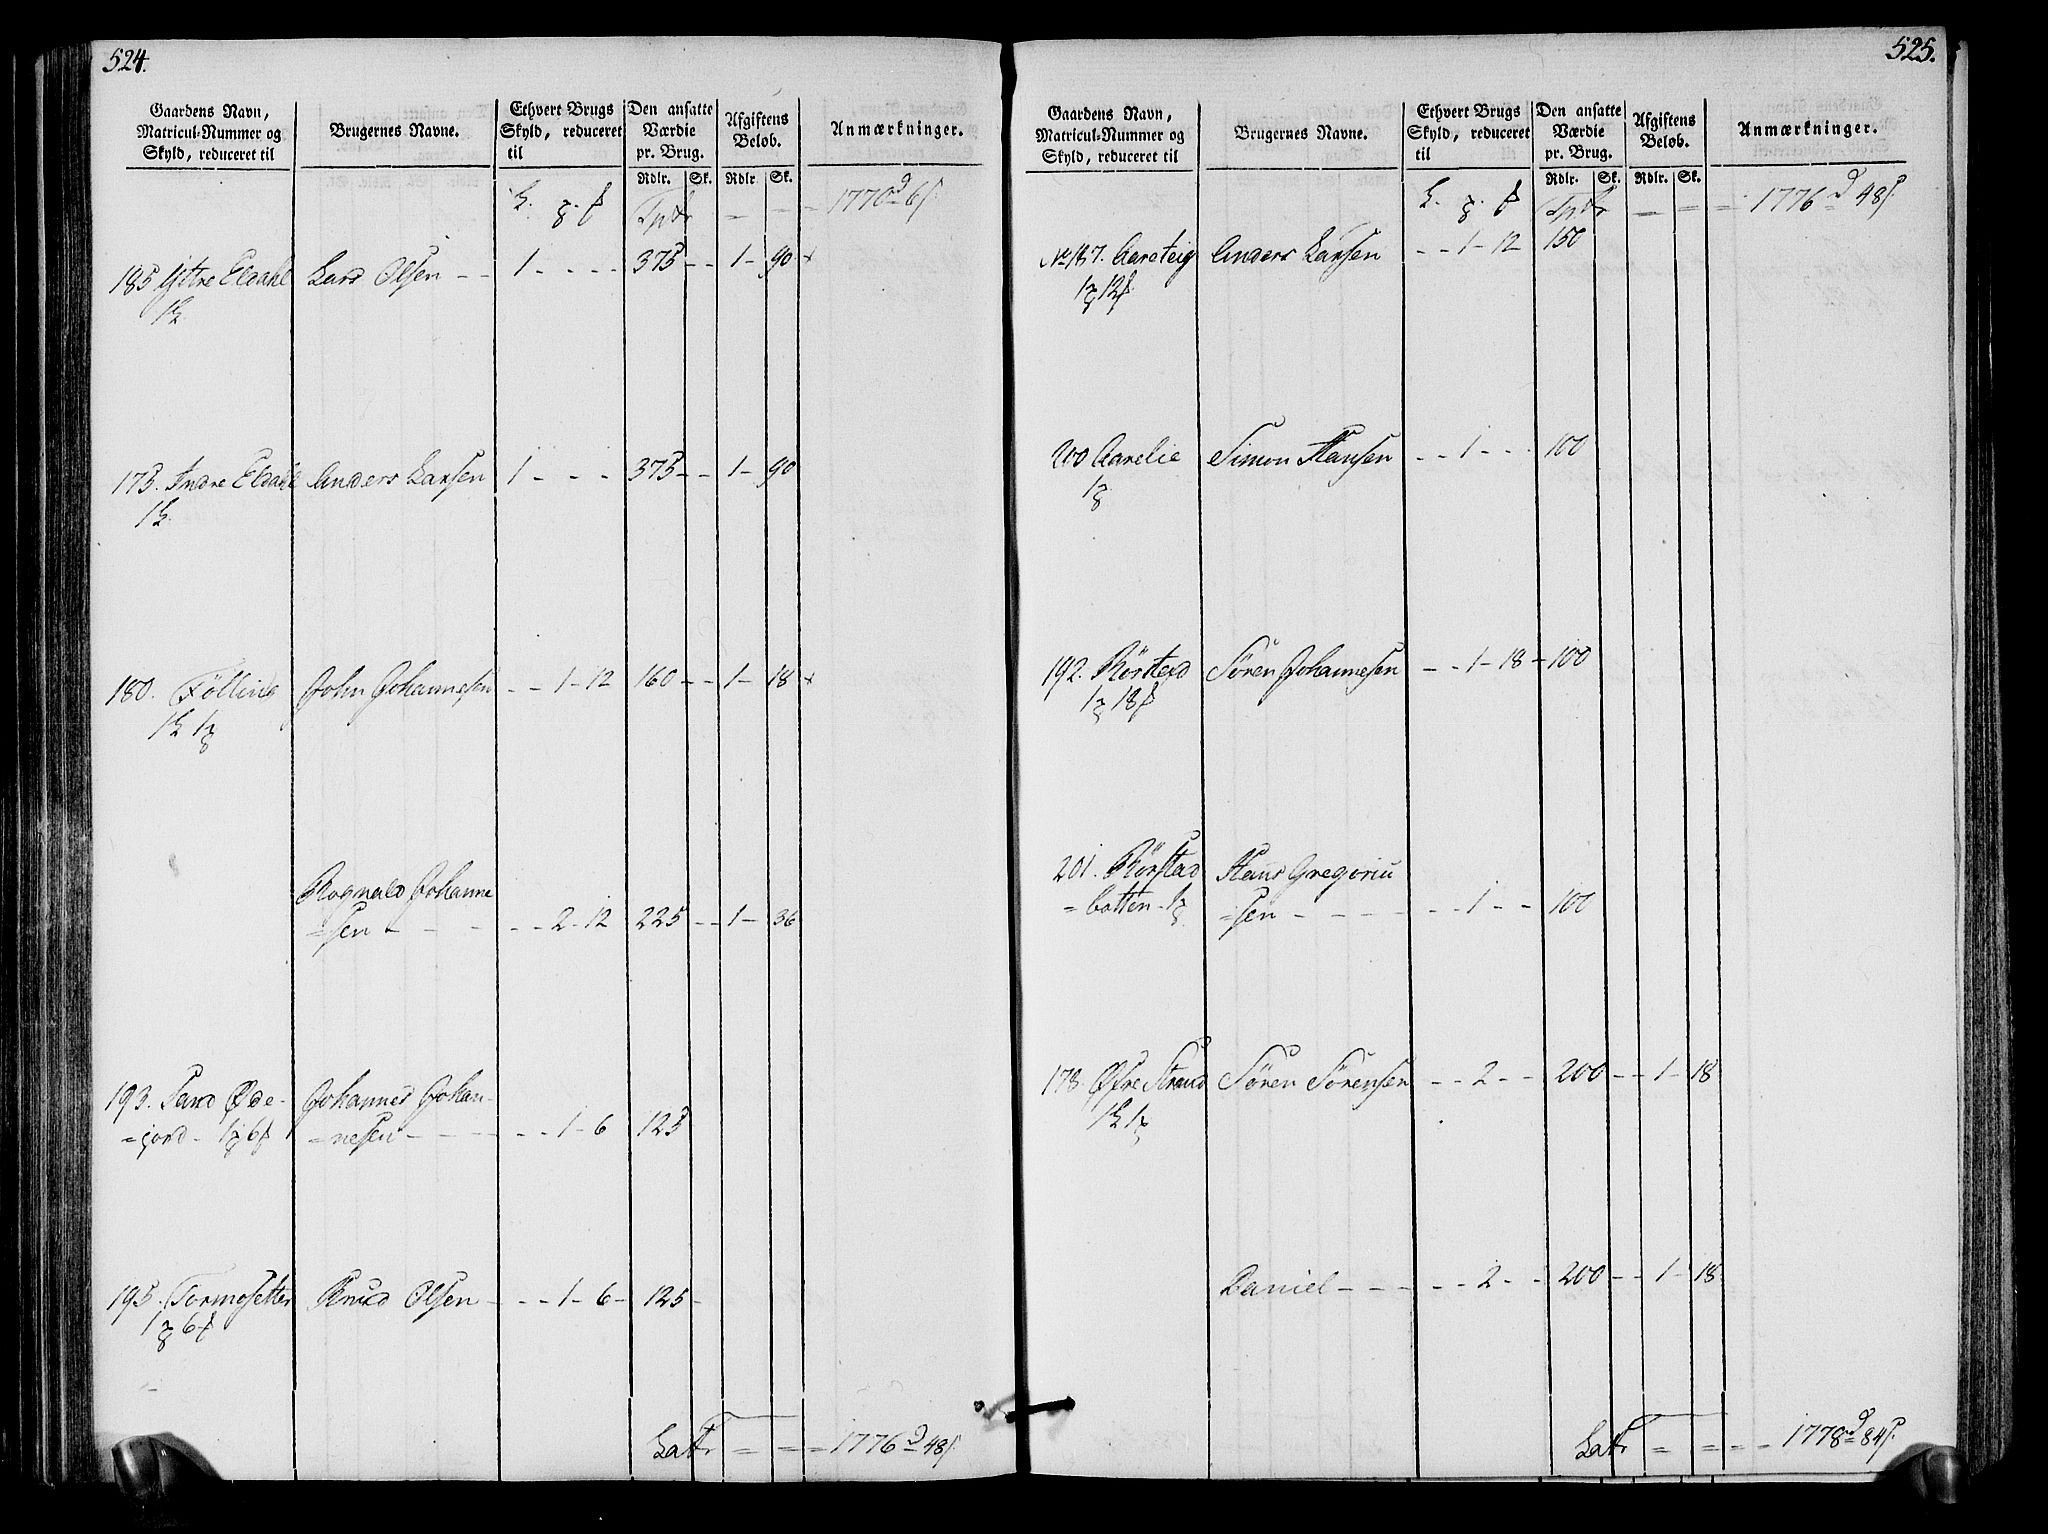 524.
Gaardens Navn, Matricul-Nummer og Skyld, reduceret til | Brugernes Navne. | Ethvert Brugs Skyld, reduceret til | Den ansatte Værdie pr. Brug. | Afgiftens Beløb. | Anmærkninger.
Rdlr. Sk. Rdlr. Sk.
Tptr = = = 1770 d 6 s.
185 Ystre Eldahl Lars Olsen - - 1 - - - - 375 - - 1 - 90 x
1
173. Indre Eldahl Anders Larsen 1 - - - 375 - - 1 - 90
1
180. Fölling John Johannesen - - 1 - 12 160 - - 1 - 18 x
1 1
Rognald Johanne
=sen - - - - - 2 - 12 225 - - 1 - 36
193. Sand Øde- Johannes Johan-
=jord - 1 6 =nesen - - - - - 1 - 6 125
195. Tormosetter Knud Olsen - - - 1 - 6 - 125 -
1 6
Latr = = = 1776 d 48 s.
525.
Gaardens Navn, Matricul-Nummer og Skyld, reduceret til | Brugernes Navne. | Ethvert Brugs Skyld, reduceret til | Den ansatte Værdie pr. Brug. | Afgiftens Beløb. | Anmærkninger.
Rdlr. Sk. Rdlr. Sk.
Tptr = = = 1776 d 48 s.
No 187. Aareteig Anders Larsen - - 1 - 12 150
1 12
200 Aarelie Simon Hansen - - 1 - - - 100
1
192. Rörstad Sören Johannesen - - 1 - 18 - 100
1 18
201. Rörstad Hans Gregoriu
=botten - 1 =sen - - - - - - 1 - - 100
178. Øfre Strand Sören Sörensen - - 2 - - 200 - - 1 - 18
1 1
Daniel - - - - - 2 - - 200 - - 1 - 18
Latr = = - - 1778 d 84 s.